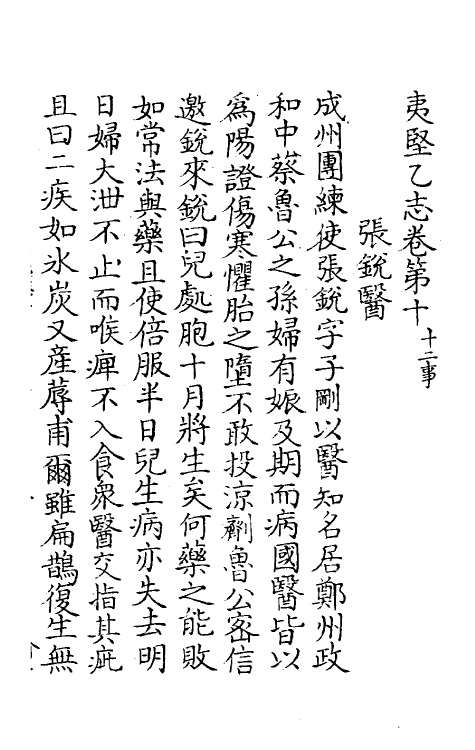 夷堅乙志卷第十 十二事
張銳醫
成州團練使張銳字子剛以醫知名居鄭州政
和中蔡魯公之孫婦有娠及期而病國醫皆以
爲陽證傷寒懼胎之墮不敢投涼劑魯公密信
邀銳來銳曰兒處胞十月將生矣何藥之能敗
如常法與藥且使倍服半日兒生病亦失去明
日婦大泄不止而喉痺不入食衆醫交指其疵
且曰二疾如氷炭又産蓐甫爾雖扁鵲復生無